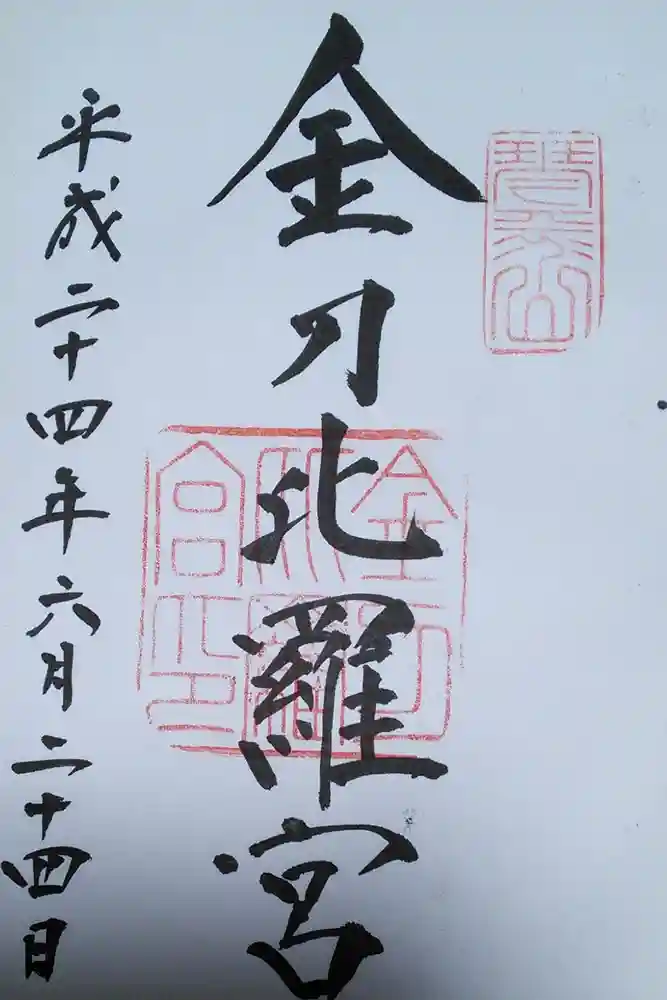 琴平山
金刀比羅宮
金刀比羅宮之印
平成二十四年六月二十四日